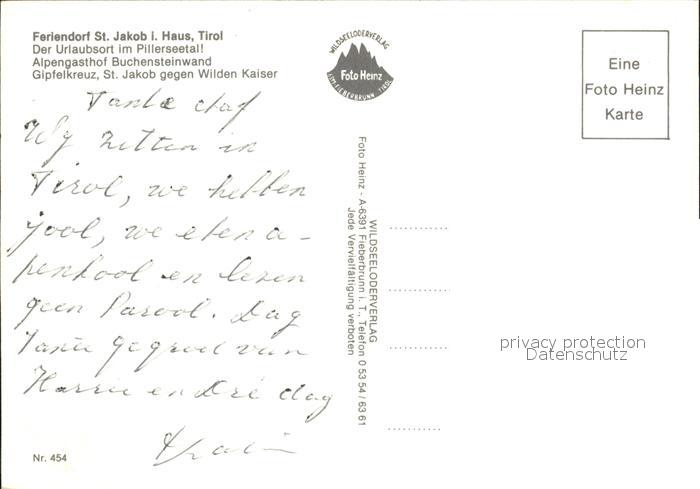 Feriendorf St. Jakob i. Haus, Tirol
Der Urlaubsort im Pillerseetal!
Alpengasthof Buchensteinwand
Gipfelkreuz, St. Jakob gegen Wilden Kaiser
Tante dag
Wy zitten in
Tirol, we hebben
jool, we eten a-
penkool en lezen
geen Parool. Dag
Tante gegroet van
Harrie en Dré dag
Nr. 454
WILDSEELODERVERLAG
Foto Heinz
FIEBERBRUNN TIROL
WILDSEELODERVERLAG
Foto Heinz - A-6391 Fieberbrunn i. T., Telefon 0 53 54 / 63 61
Jede Vervielfältigung verboten
Eine
Foto Heinz
Karte
privacy protection
Datenschutz